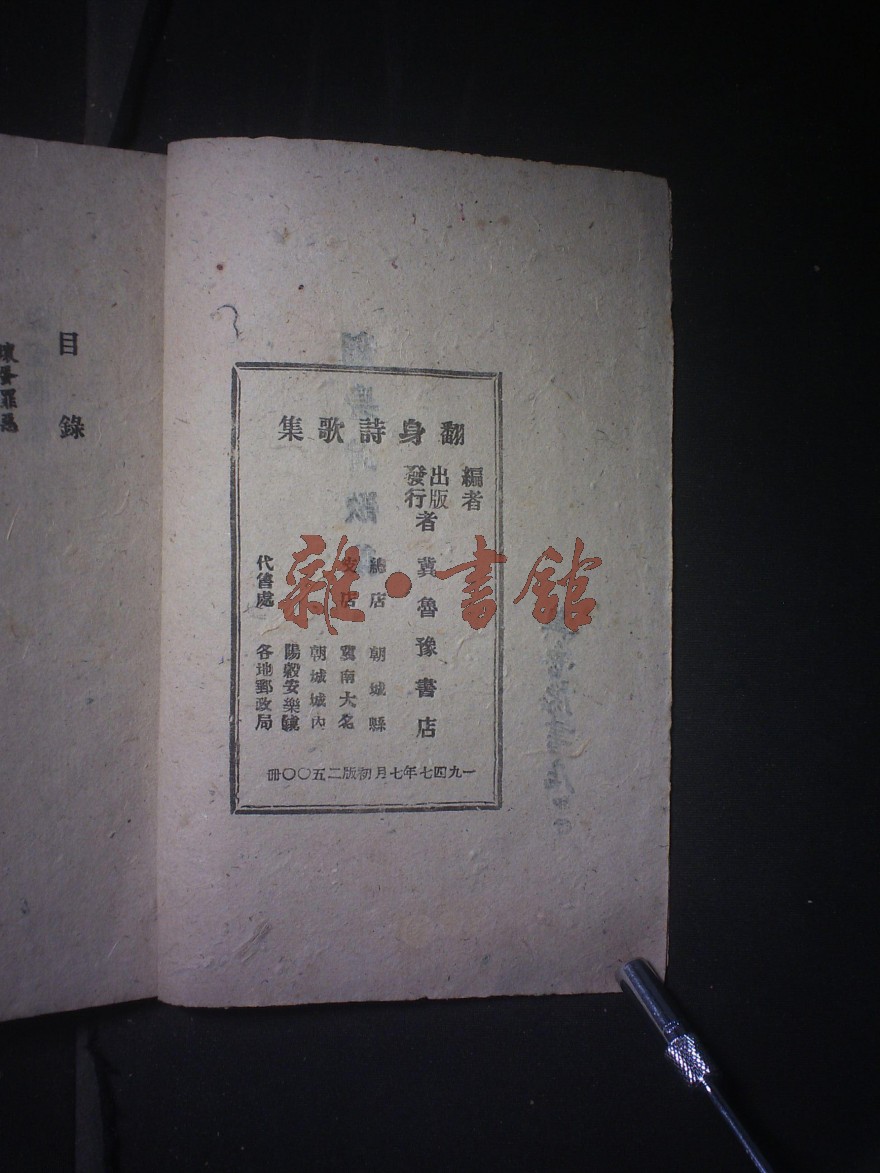 翻身詩歌集
編者
出版
發行者
冀魯豫書店
總店 朝城縣
支店 冀南大名
朝城城內
陽穀安樂鎮
代售處 各地郵政局
一九四七年七月初版二五〇〇冊
目錄
壞蛋罪惡
雜·書館